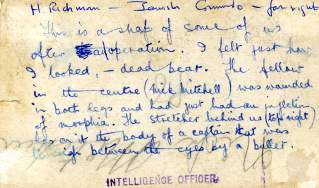 H Richman — Jewish Commdo — far right
This is a snap of some of us
after operation. I felt just how
I looked, - dead beat. The fellow
in the centre (Mick Mitchell) was wounded
in both legs and had just had an injection
of morphia. The stretcher behind us (top right)
has on it the body of a captain that was
between the eyes by a bullet.
INTELLIGENCE OFFICER